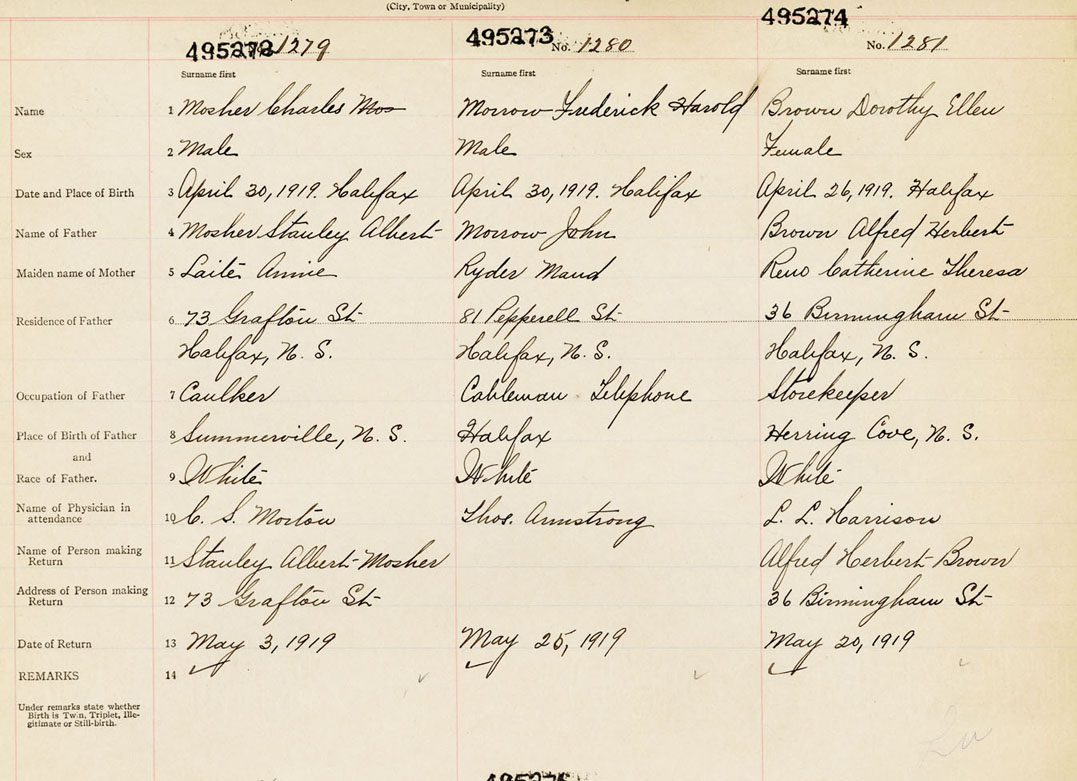 (City, Town or Municipality)
495273 495274
1279 No. 1280 No. 1281
Surname first Surname first Surname first
Name 1 Mosher Charles Mos Morrow Frederick Harold Brown Dorothy Ellen
Sex 2 Male Male Female
Date and Place of Birth 3 April 30, 1919. Halifax April 30, 1919. Halifax April 26, 1919. Halifax
Name of Father 4 Mosher Stanley Albert Morrow John Brown Alfred Herbert
Maiden name of Mother 5 Laite Annie Ryder Maud Reno Catherine Theresa
Residence of Father 6 73 Grafton St 81 Pepperell St 36 Birmingham St
Halifax, N. S. Halifax, N. S. Halifax, N. S.
Occupation of Father 7 Caulker Cableman Telephone Storekeeper
Place of Birth of Father 8 Summerville, N. S. Halifax Herring Cove, N. S.
and
Race of Father. 9 White White White
Name of Physician in
attendance 10 C. S. Morton Thos. Armstrong L. L. Harrison
Name of Person making
Return 11 Stanley Albert Mosher Alfred Herbert Brown
Address of Person making
Return 12 73 Grafton St 36 Birmingham St
Date of Return 13 May 3, 1919 May 25, 1919 May 20, 1919
REMARKS 14
Under remarks state whether
Birth is Twin, Triplet, Ille-
gitimate or Still-birth.